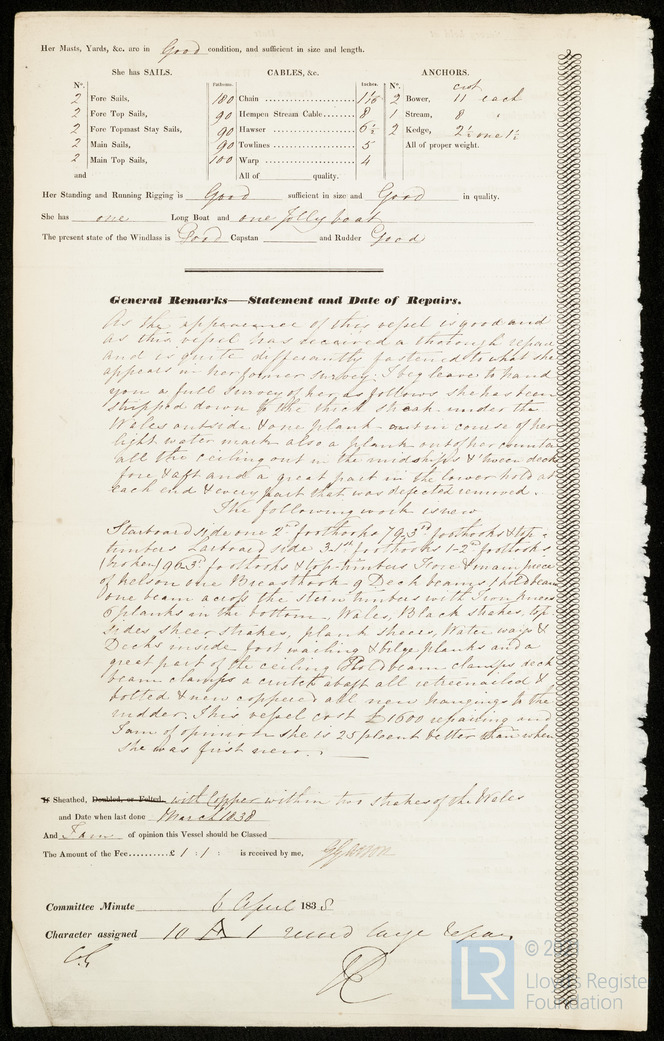 Her Masts, Yards, &c. are in Good condition, and sufficient in size and length.
She has SAILS. CABLES, &c. ANCHORS.
N°. Fathoms. Inches. N°. cwt
2 Fore Sails, 180 Chain 1 1/16 2 Bower, 11 each
2 Fore Top Sails, 90 Hempen Stream Cable 8 1 Stream, 8 "
2 Fore Topmast Stay Sails, 90 Hawser 6½ 2 Kedge, 2½ one 1½
2 Main Sails, 90 Towlines 5 All of proper weight.
2 Main Top Sails, 100 Warp 4
and All of quality.
Her Standing and Running Rigging is Good sufficient in size and Good in quality.
She has one Long Boat and one Jolly boat
The present state of the Windlass is Good Capstan and Rudder Good
General Remarks—Statement and Date of Repairs.
As the appearance of this vessel is good and
as this vessel has received a thorough repair
and is quite differantly fastened to what she
appears in her former survey. I beg leave to hand
you a full Survey of her as follows she has been
stripped down to the thick streak under the
Wales outside & one plank out in course of her
light water mark also a plank out of her counter
all the ceiling out in the midships & 'tween decks
fore & aft and a great part in the lower hold at
each end & every part that was defected removed.
The following work is new
Starboard side one 2nd foothooks 79 3rd foothooks & top-
timbers Larboard side 3 1st foothooks 1-2nd foothooks
(broken) 96 3rd foothooks & top-timbers Fore & main piece
of kelson one Breasthook 9 Deck beams 1 hold beam
one beam across the stern timbers with Iron knees
6 planks in the bottom, Wales, Black strakes, top
sides sheer strakes, plank sheers, Water ways &
Decks inside foot wailing & bilge planks and a
great part of the ceiling Hold beam clamps deck
beam clamps a crutch abaft all retreenailed &
bolted & new coppered all new hangings to the
rudder. This vessel cost £1600 repairing and
I am of opinion she is 25 pcent better than when
she was first new.
If Sheathed, Doubled, or Felted, with Copper within two strakes of the Wales
and Date when last done March 1838
And I am of opinion this Vessel should be Classed
The Amount of the Fee £ 1 : 1 : is received by me,
Committee Minute 6 April 1838
Character assigned 10 A 1 large repair
© Lloyd's Register
Foundation
LR